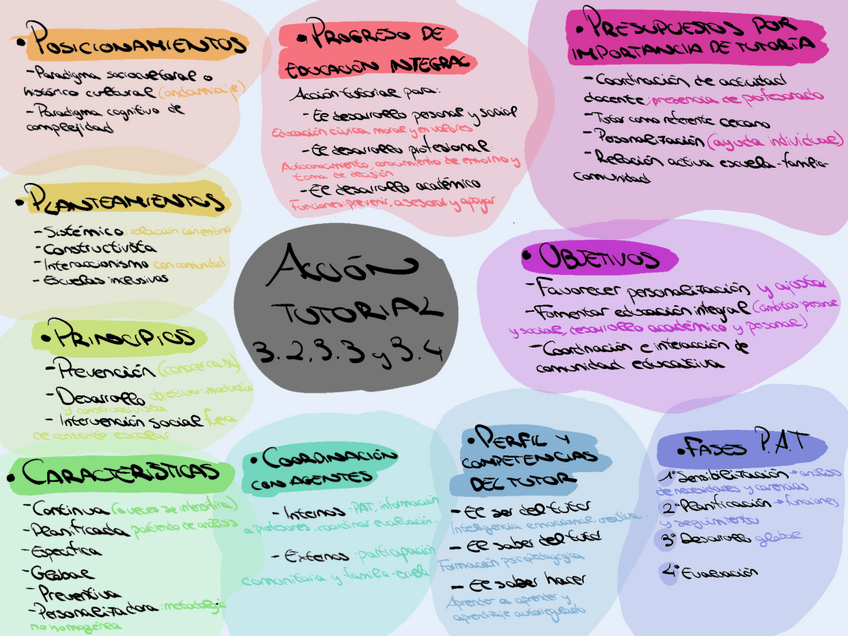 • POSICIONAMIENTOS
- Paradigma sociocultural o
histórico cultural (andamiaje)
- Paradigma cognitivo de
complejidad
• PROGRESO DE
EDUCACIÓN INTEGRAL
Acción tutorial para:
- El desarrollo personal y social
Educación cívica, moral y en valores
- El desarrollo profesional
Autoconocimiento, conocimiento de entorno y
toma de decisión
- El desarrollo académico
Funciones: prevenir, asesorar y apoyar
• PRESUPUESTOS POR
IMPORTANCIA DE TUTORÍA
- Coordinación de actividad
docente: presencia de profesorado
- Tutor como referente cercano
- Personalización (ayuda individual)
- Relación activa escuela-familia-
comunidad
• PLANTEAMIENTOS
- Sistémico: relación con entorno
- Constructivista
- Interaccionismo con comunidad
- Escuelas inclusivas
ACCIÓN
TUTORIAL
3.2, 3.3 y 3.4
• OBJETIVOS
- Favorecer personalización y ajustar
- Fomentar educación integral (ámbitos: personal
y social, desarrollo académico y personal)
- Coordinación e interacción de
comunidad educativa
• PRINCIPIOS
- Prevención (conocer causa)
- Desarrollo objetivo: madurativo
y constructivista
- Intervención social fuera
de contexto escolar
• CARACTERÍSTICAS
- Continua (a veces se intensifica)
- Planificada partiendo de análisis
- Específica
- Global
- Preventiva
- Personalizadora: metodología
no homogénea
• COORDINACIÓN
CON AGENTES
- Internos: PAT, información
a profesores, coordinar evaluación
- Externos: participación
comunitaria y familia-escuela
• PERFIL Y
COMPETENCIAS
DEL TUTOR
- El ser del tutor
Inteligencia emocional, creativa...
- El saber del tutor
Formación psicopedagógica
- El saber hacer
Aprender a aprender y
aprendizaje autorregulado
• FASES P.A.T
1º Sensibilización → análisis
de necesidades y carencias
2 - Planificación → funciones
y seguimiento
3º Desarrollo global
4º Evaluación